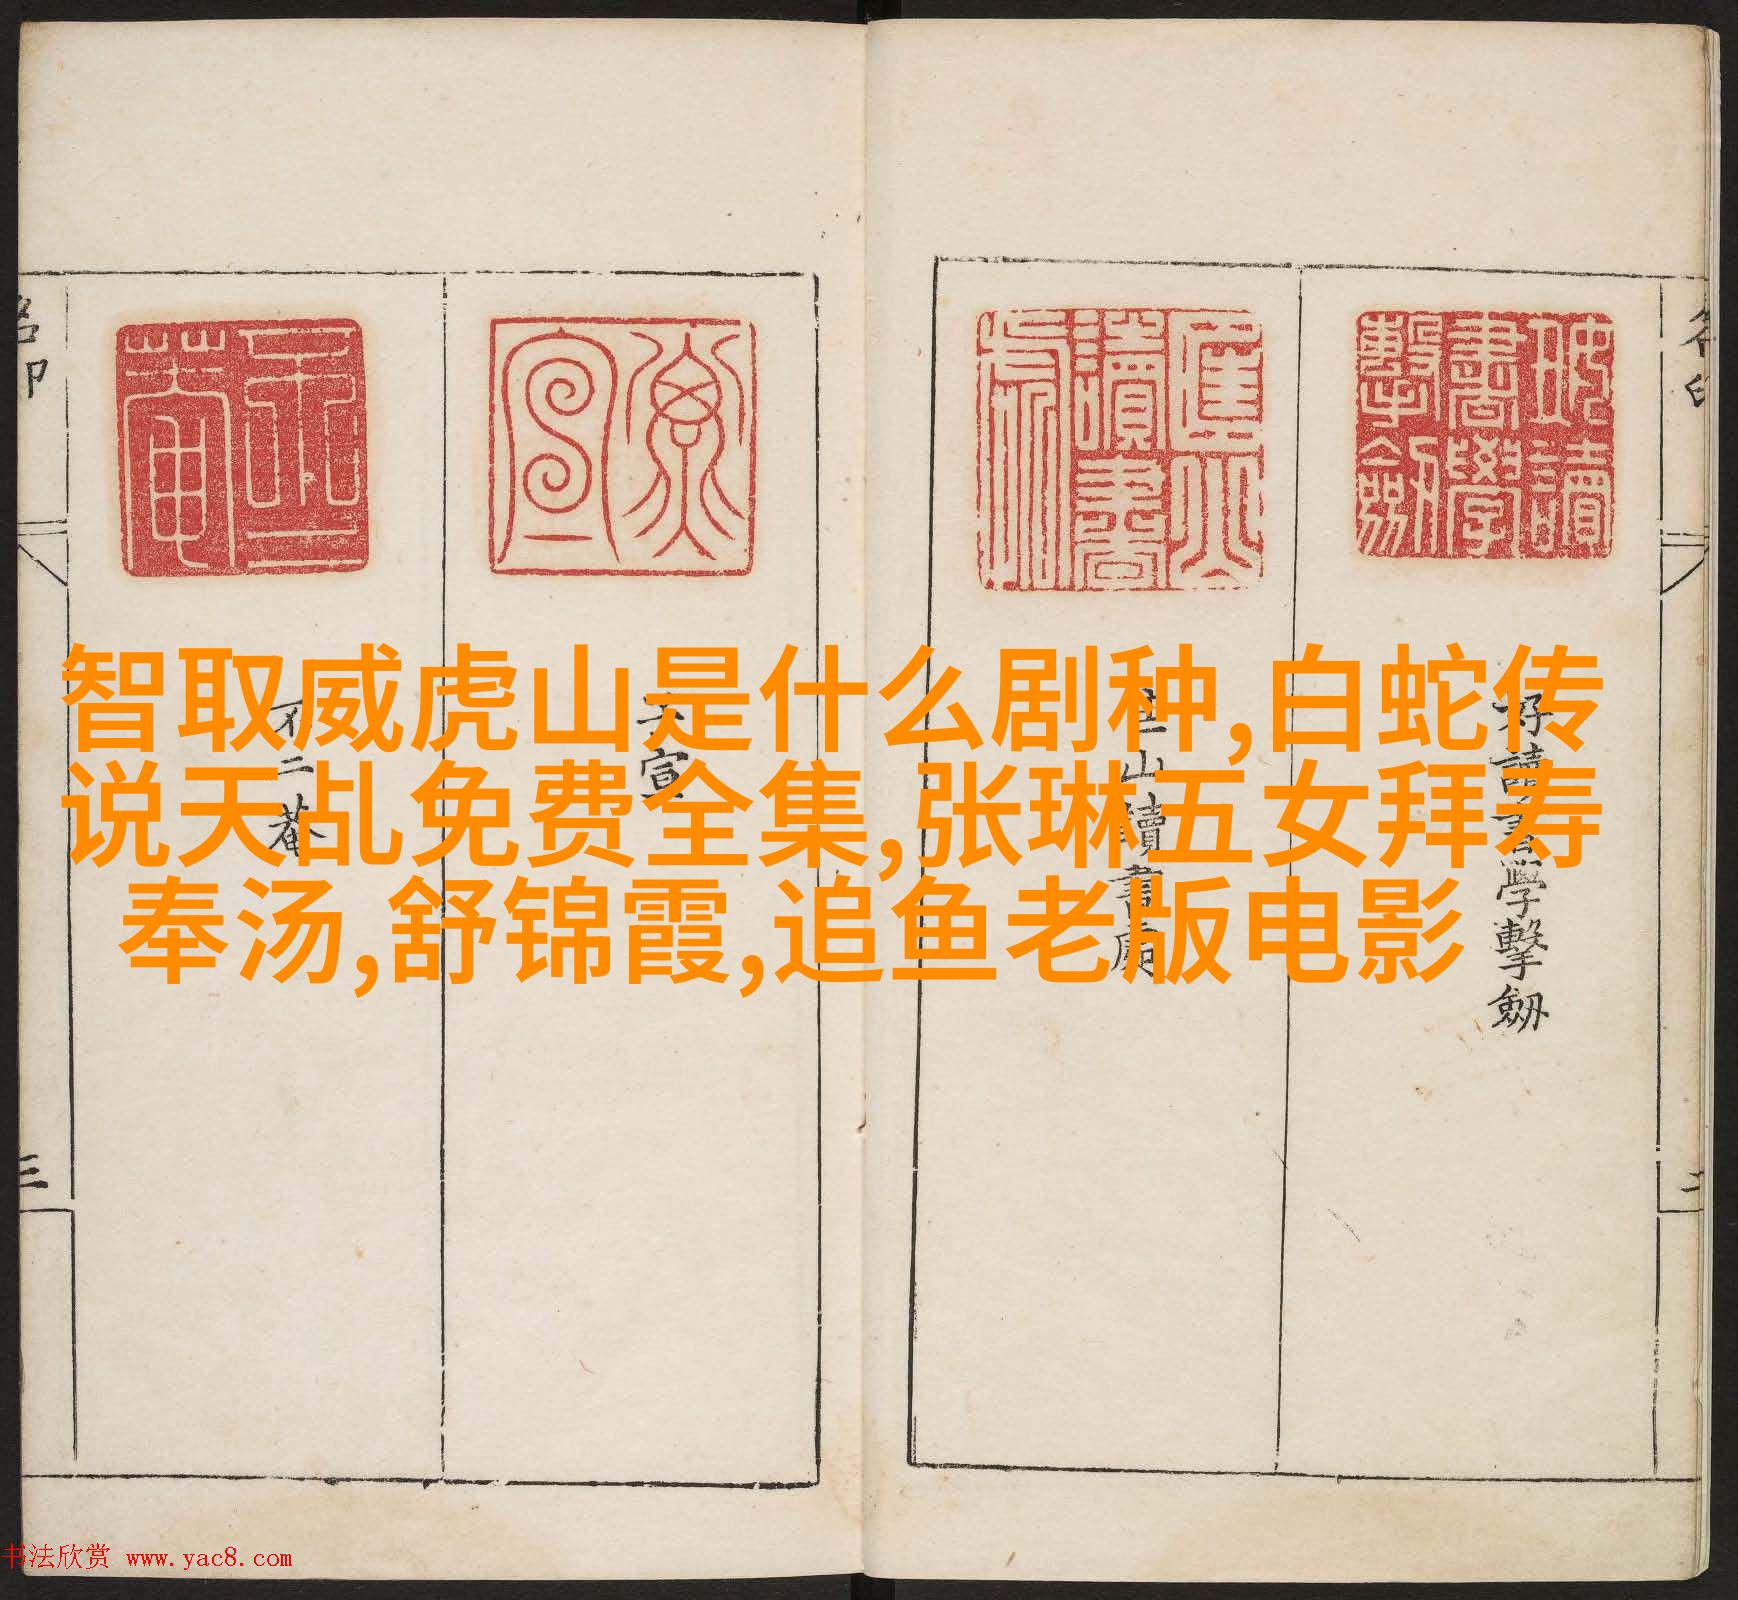 智取威虎山是什么剧种,白蛇传
说天乩免费全集,张琳五女拜寿
奉汤,舒锦霞,追鱼老版电影
好讀書學擊劍
匡山讀書處
子宣
不二菴
名印
三
书法欣赏 www.yac8.com